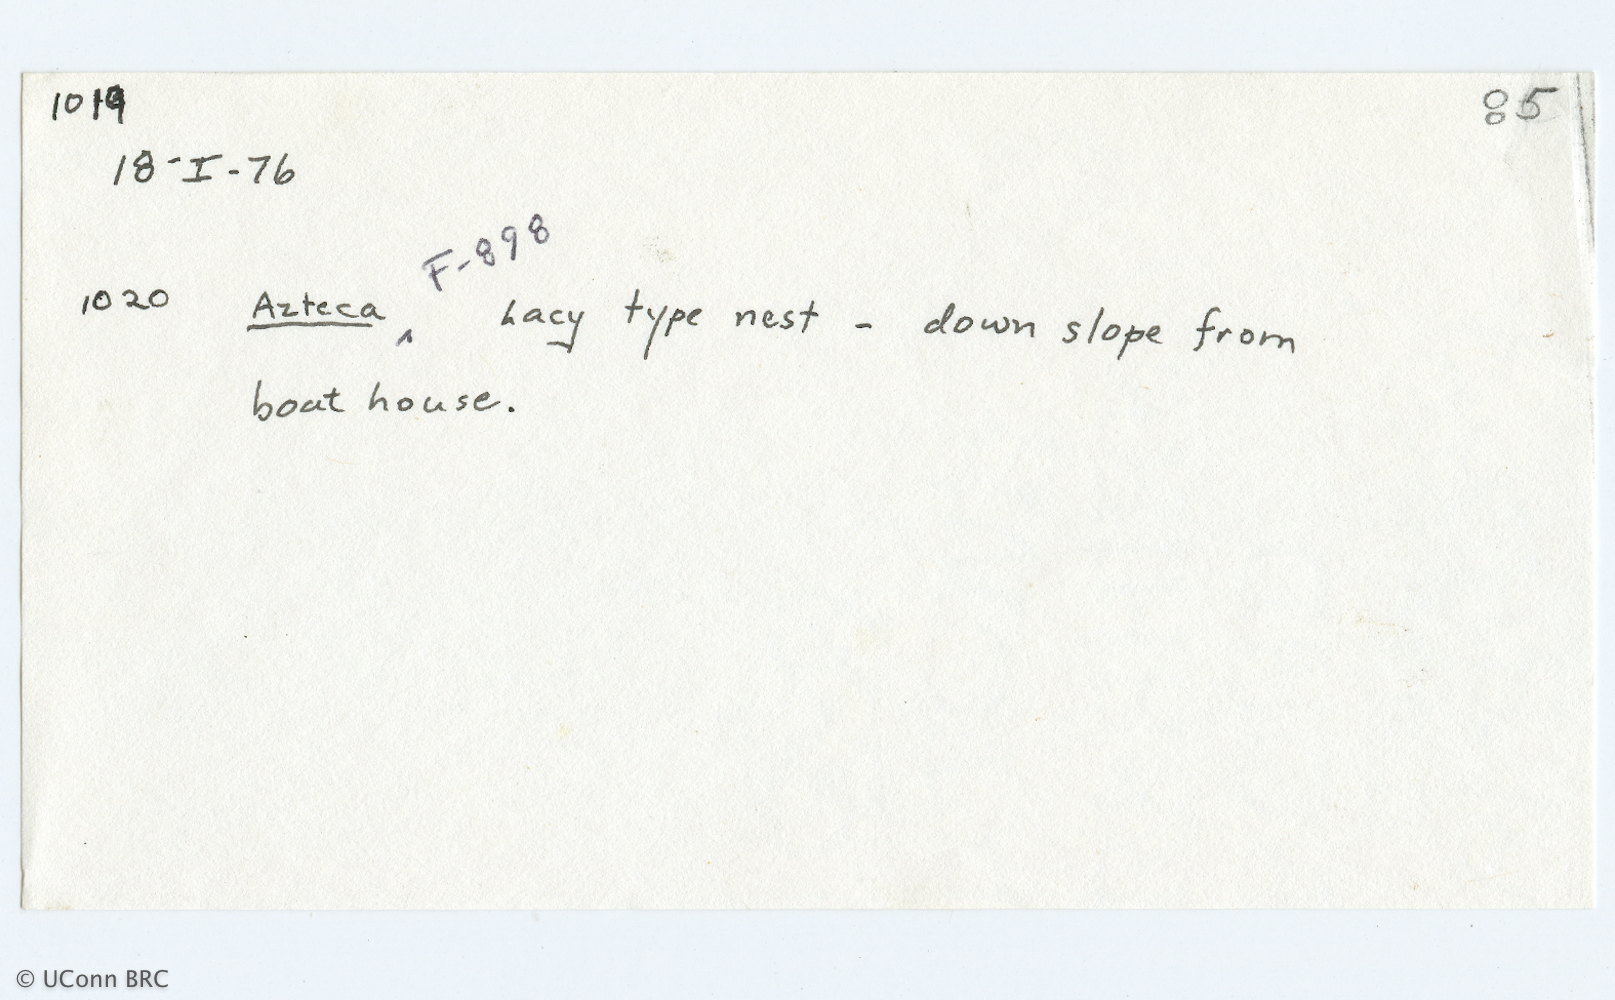 1019
85
18-I-76
F-898
1020 Azteca ^ Lacy type nest - down slope from
boat house.
© UConn BRC